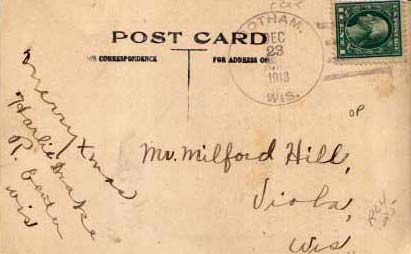 POST CARD
FOR CORRESPONDENCE
FOR ADDRESS ON
GOTHAM,
DEC
23
1913
WIS.
1 CENT 1
OP
Merry Xmas
Harlie Drake
R. Center
Wis
Mr. Milford Hill,
Viola,
Wis